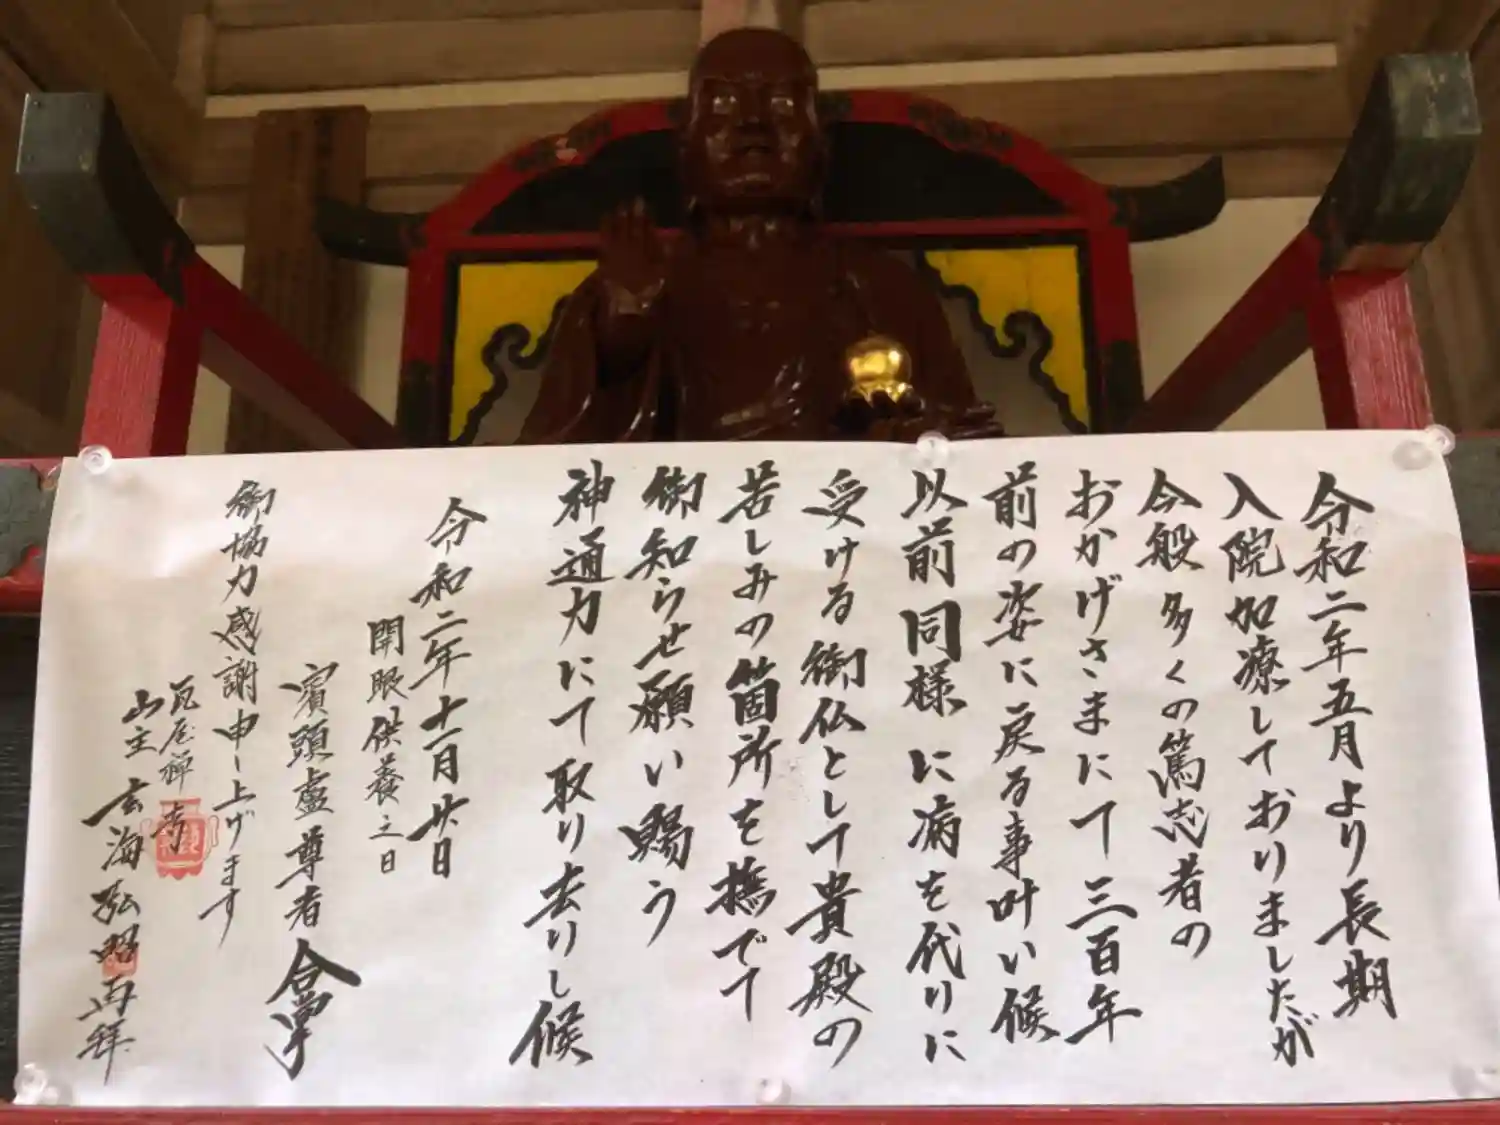 令和二年五月より長期
入院加療しておりましたが
今般多くの篤志者の
おかげさまにて三百年
前の姿に戻る事叶い候
以前同様に病を代りに
受ける御仏として貴殿の
苦しみの箇所を撫でて
御知らせ願い賜う
神通力にて取り去りし候
令和二年十一月廿日
開眼供養之日
賓頭盧尊者 合掌
御協力感謝申し上げます
瓦屋禅寺
山主 玄海弘昭 再拝